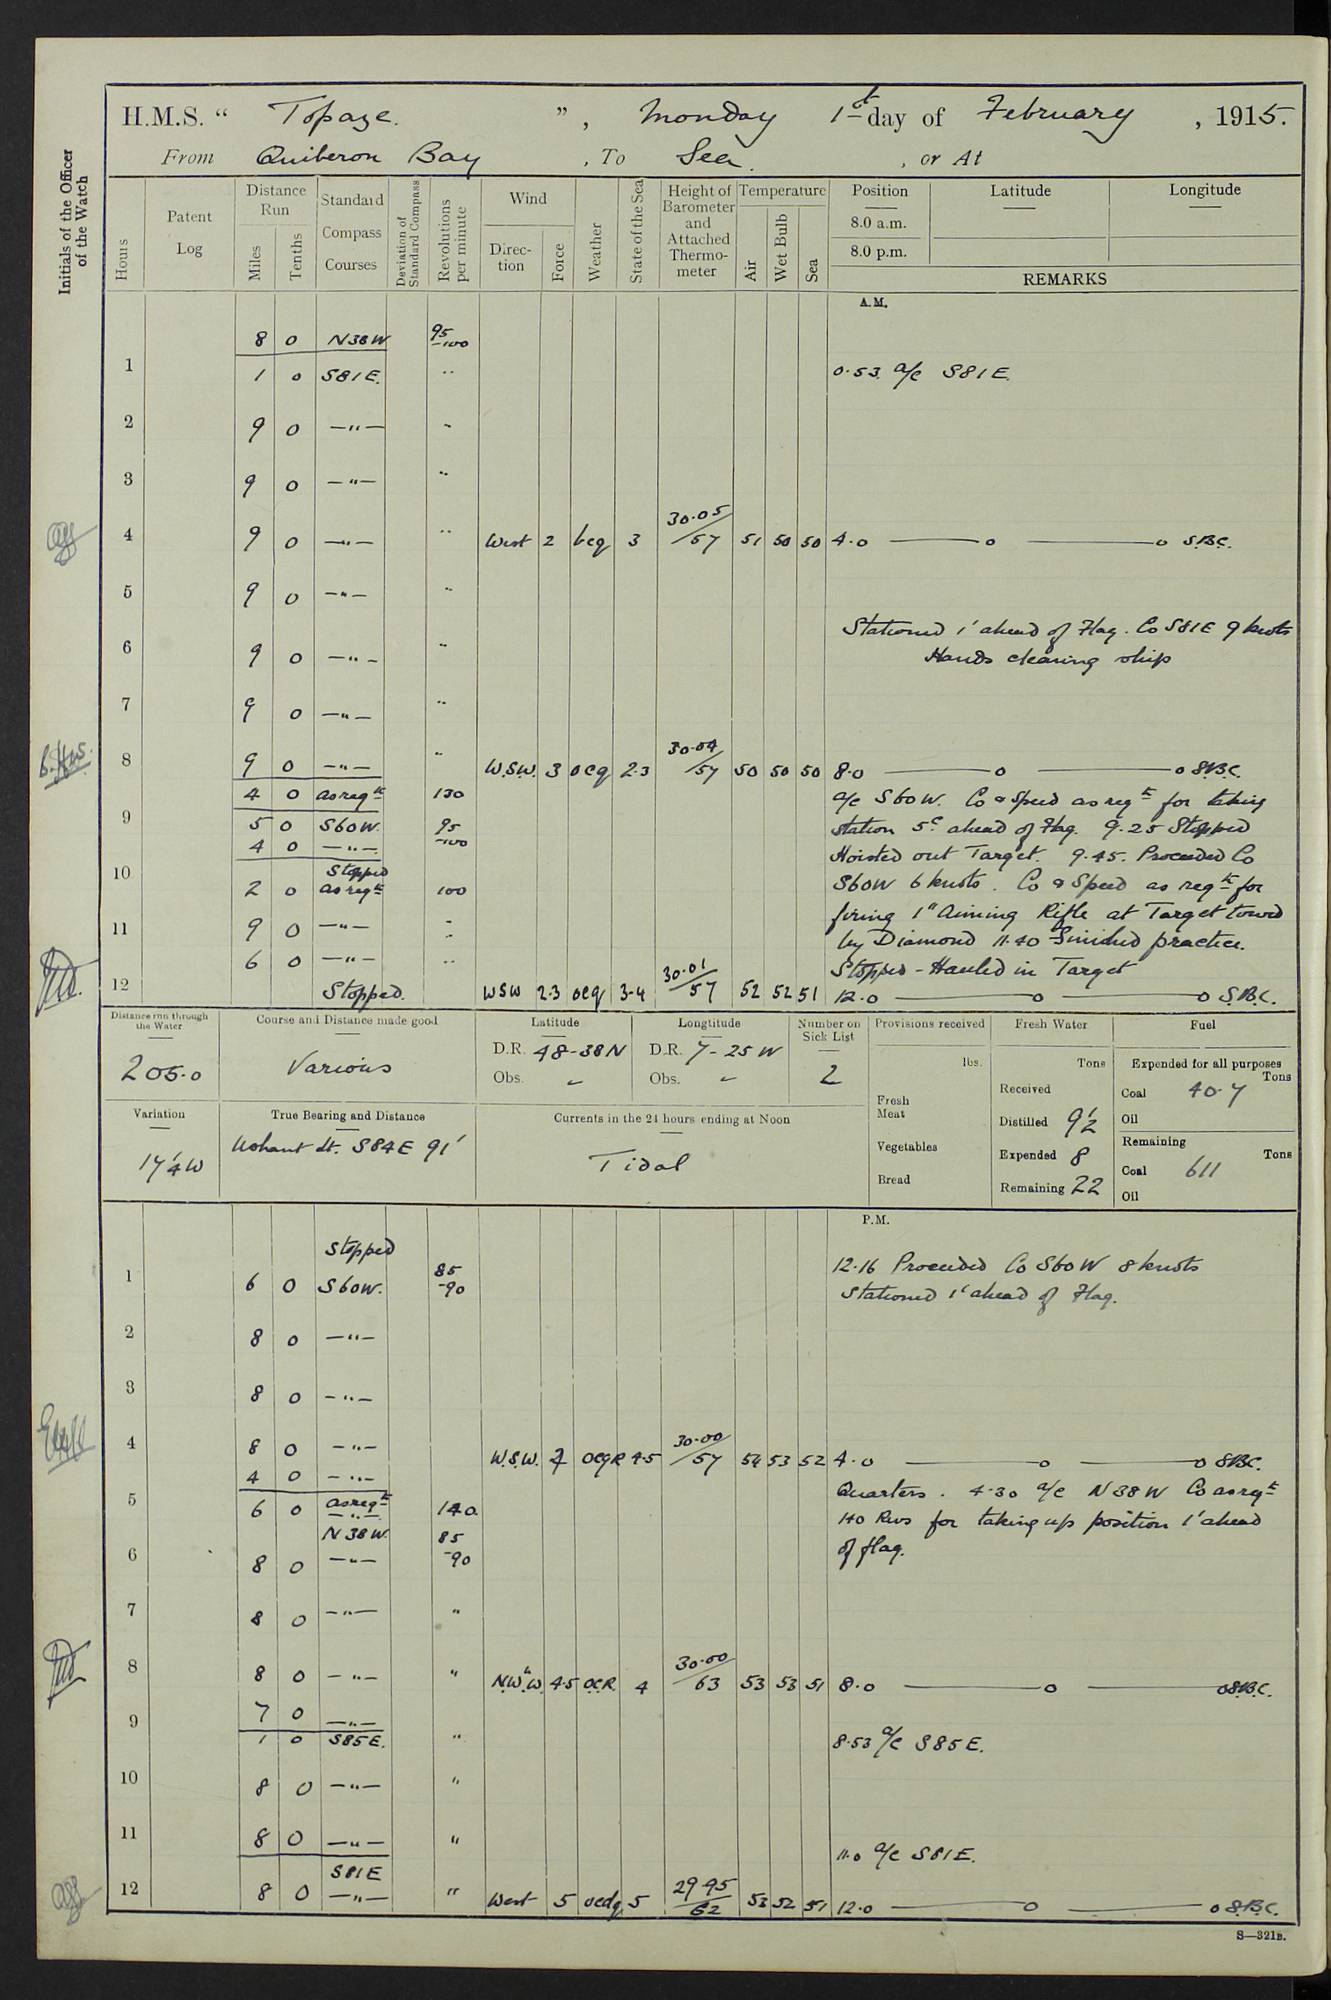 H.M.S. “ Topaze. ”, Monday 1st day of February, 1915.
From Quiberon Bay, To Sea, or At
Initials of the Officer of the Watch
Hours
Patent Log
Distance Run
Miles
Tenths
Standard Compass Courses
Deviation of Standard Compass
Revolutions per minute
Wind
Direction
Force
Weather
State of the Sea
Height of Barometer and Attached Thermometer
Temperature
Air
Wet Bulb
Sea
Position
Latitude
Longitude
8.0 a.m.
8.0 p.m.
REMARKS
A.M.
8 0 N38W 95-100
1 1 0 S81E. " 0.53. a/c S81E.
2 9 0 —"— "
3 9 0 —"— "
4 9 0 —"— " West 2 bcq 3 30.05/57 51 50 50 4.0 — o — o S.B.C.
5 9 0 —"— "
Stationed 1' ahead of Flag. Co S81E 9 knots
6 9 0 —"— "
Hands cleaning ship
7 9 0 —"— "
8 9 0 —"— " W.S.W. 3 ocq 2.3 30.04/57 50 50 50 8.0 — o — o S.B.C.
4 0 as reqte 130 a/c S60W. Co & Speed as reqte for taking
9 5 0 S60W. 95-100 station 5c ahead of Flag. 9.25 Stopped
4 0 —"— Hoisted out Target. 9.45. Proceeded Co
10 Stopped
2 0 as reqte 100 S60W 6 knots. Co & Speed as reqte for
firing 1" Aiming Rifle at Target towed
11 9 0 —"— "
by Diamond 11.40 Finished practice.
6 0 —"— " Stopped - Hauled in Target
12 Stopped. WSW 2.3 ocq 3-4 30.01/57 52 52 51 12.0 — o — o S.B.C.
Distance run through the Water
205.0
Course and Distance made good
Various
Latitude
D.R. 48-38N
Obs. "
Longtitude
D.R. 7-25W
Obs. "
Number on Sick List
2
Provisions received
lbs.
Fresh Meat
Vegetables
Bread
Fresh Water
Tons
Received
Distilled 9½
Expended 8
Remaining 22
Fuel
Expended for all purposes
Tons
Coal 40.7
Oil
Remaining
Tons
Coal 611
Oil
Variation
17¼W
True Bearing and Distance
Ushant Lt. S84E 91'
Currents in the 24 hours ending at Noon
Tidal
P.M.
Stopped 12.16 Proceeded Co S60W 8 knots
1 6 0 S60W. 85-90 Stationed 1' ahead of Flag.
2 8 0 —"—
3 8 0 —"—
4 8 0 —"— W.S.W. 4 ocqR 4.5 30.00/57 54 53 52 4.0 — o — o S.B.C.
4 0 —"— Quarters. 4.30 a/c N38W Co as reqte
5 6 0 as reqte —"— 140. 140 Revs for taking up position 1' ahead
N38W. 85-90 of flag.
6 8 0 —"—
7 8 0 —"— "
8 8 0 —"— " N.W"W. 4.5 ocR 4 30.00/63 53 53 51 8.0 — o — o S.B.C.
7 0 —"—
9 1 0 S85E. " 8.53 a/c S85E.
10 8 0 —"— "
11 8 0 —"— " 11.0 a/c S81E.
S81E
12 8 0 —"— " West 5 ocdq 5 29.95/62 53 52 51 12.0 — o — o S.B.C.
S—321B.